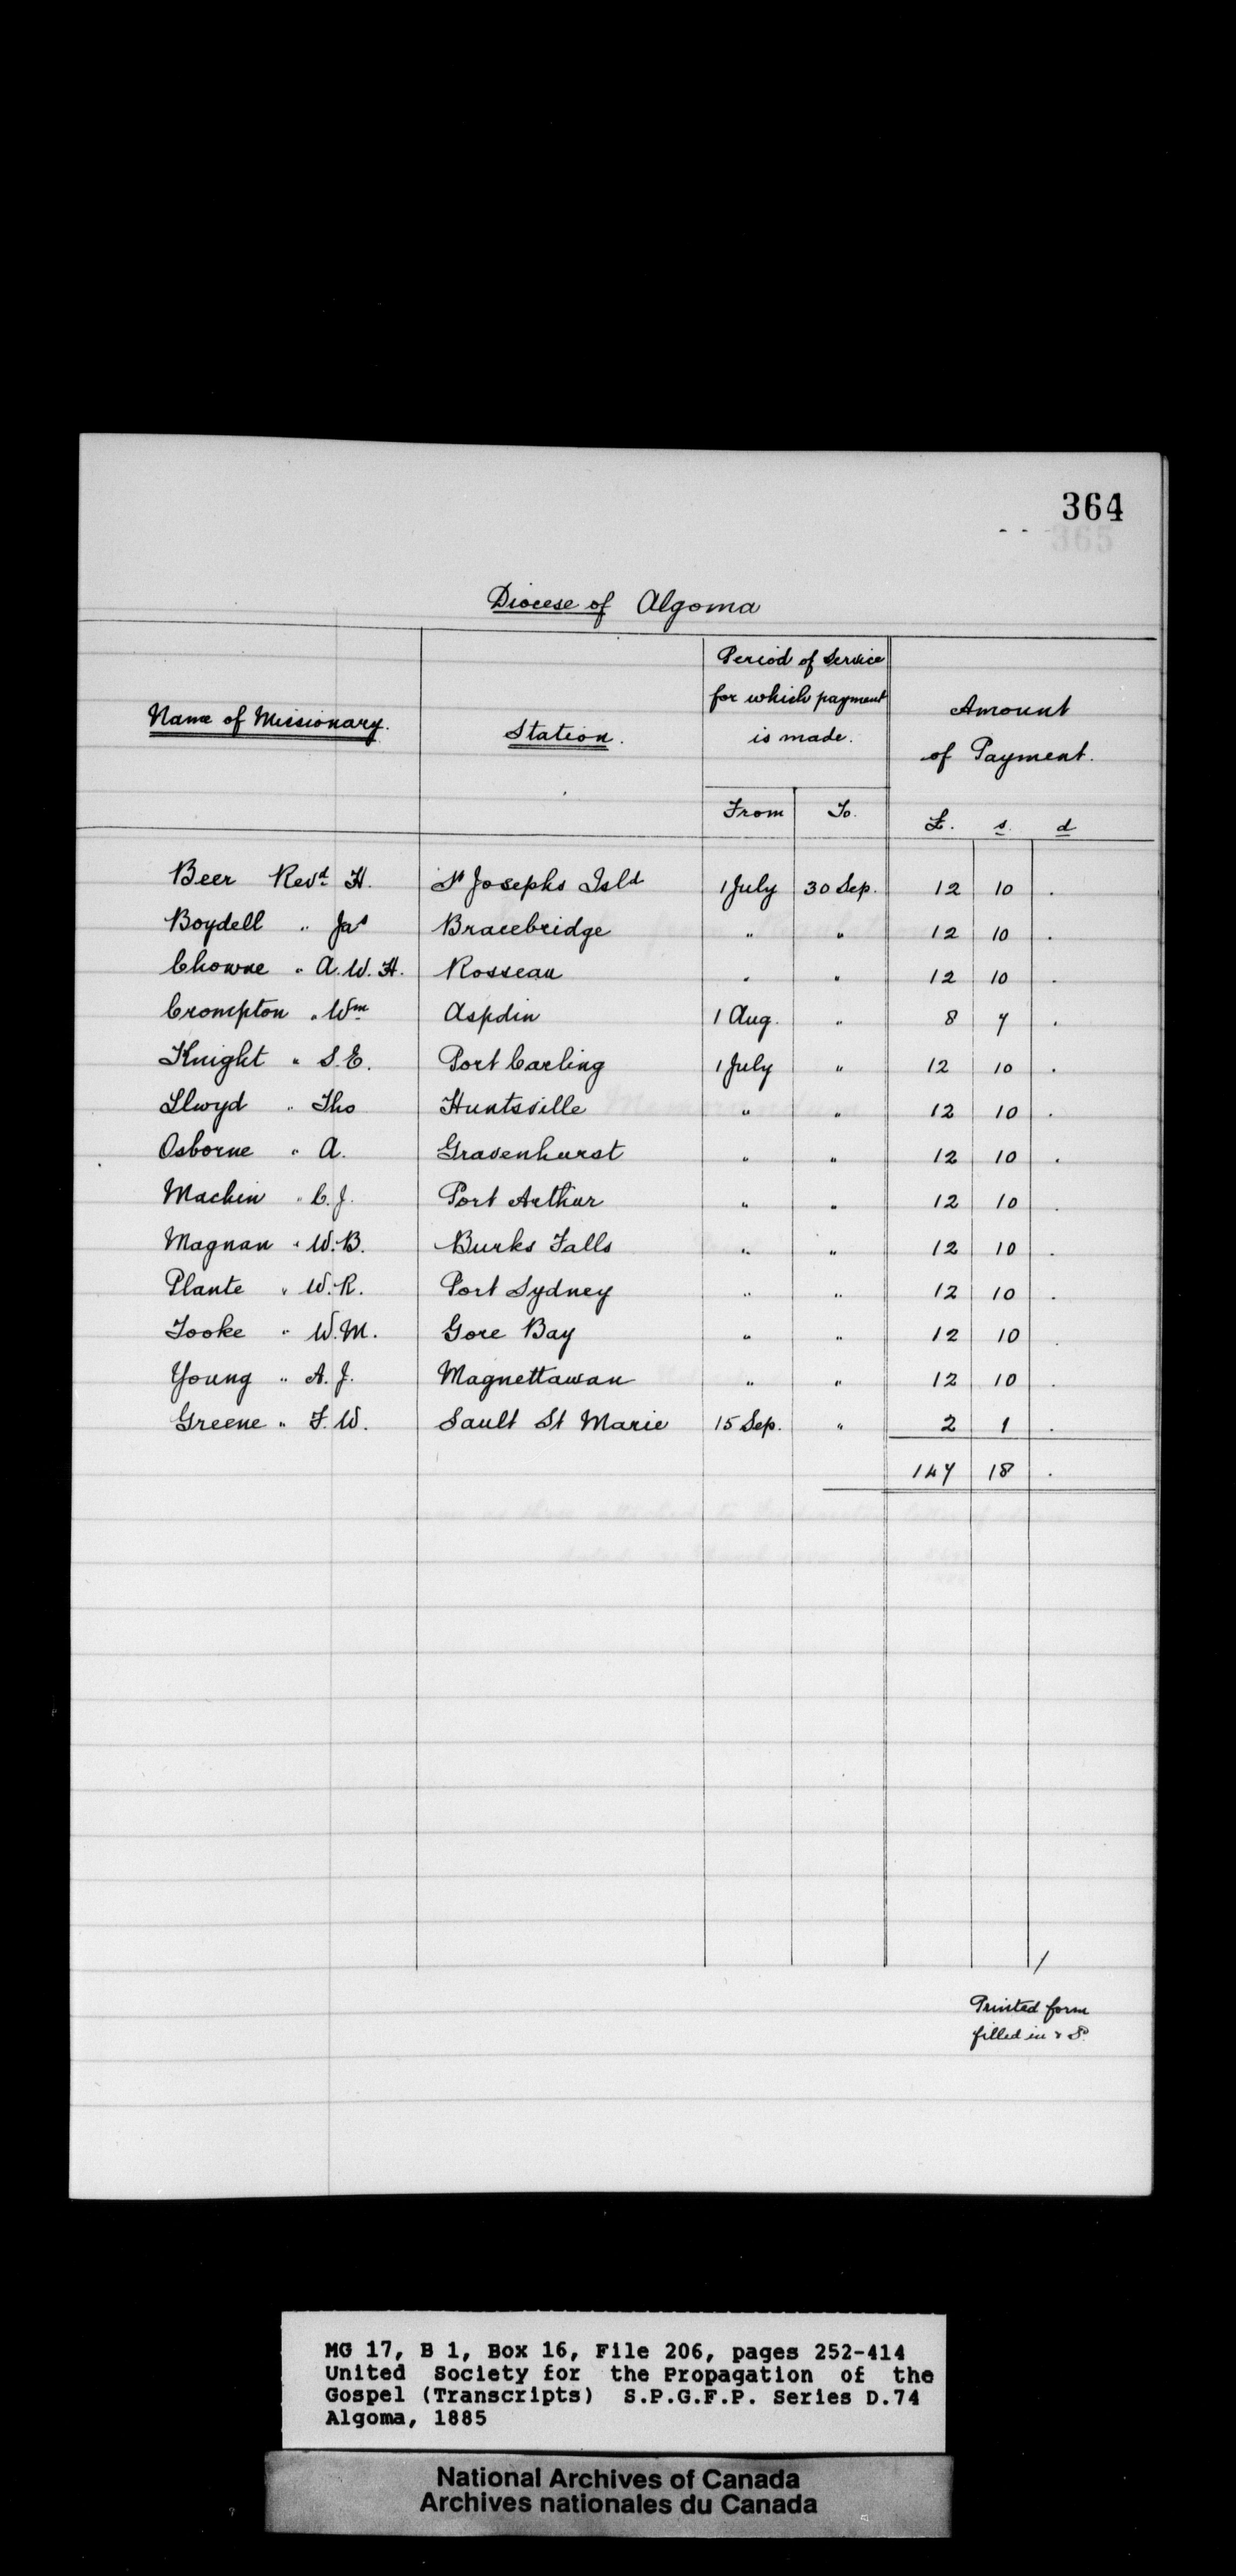 364
365
Diocese of Algoma
Name of Missionary.
Station.
Period of Service
for which payment
is made.
From To.
Amount
of Payment.
£. s. d
Beer Revd. H. St Josephs Isld 1 July 30 Sep. 12 10 .
Boydell " Jas Bracebridge " " 12 10 .
Chowne " A. W. H. Rosseau " " 12 10 .
Crompton " Wm Aspdin 1 Aug. " 8 7 .
Knight " S. E. Port Carling 1 July " 12 10 .
Llwyd " Tho Huntsville " " 12 10 .
Osborne " A. Gravenhurst " " 12 10 .
Machin " C. J. Port Arthur " " 12 10 .
Magnan " W. B. Burks Falls " " 12 10 .
Plante " W. R. Port Sydney " " 12 10 .
Tooke " W. M. Gore Bay " " 12 10 .
Young " A. J. Magnettawan " " 12 10 .
Greene " F. W. Sault St Marie 15 Sep. " 2 1 .
147 18 .
Printed form
filled in & S.
MG 17, B 1, Box 16, File 206, pages 252-414
United Society for the Propagation of the
Gospel (Transcripts) S.P.G.F.P. Series D.74
Algoma, 1885
National Archives of Canada
Archives nationales du Canada